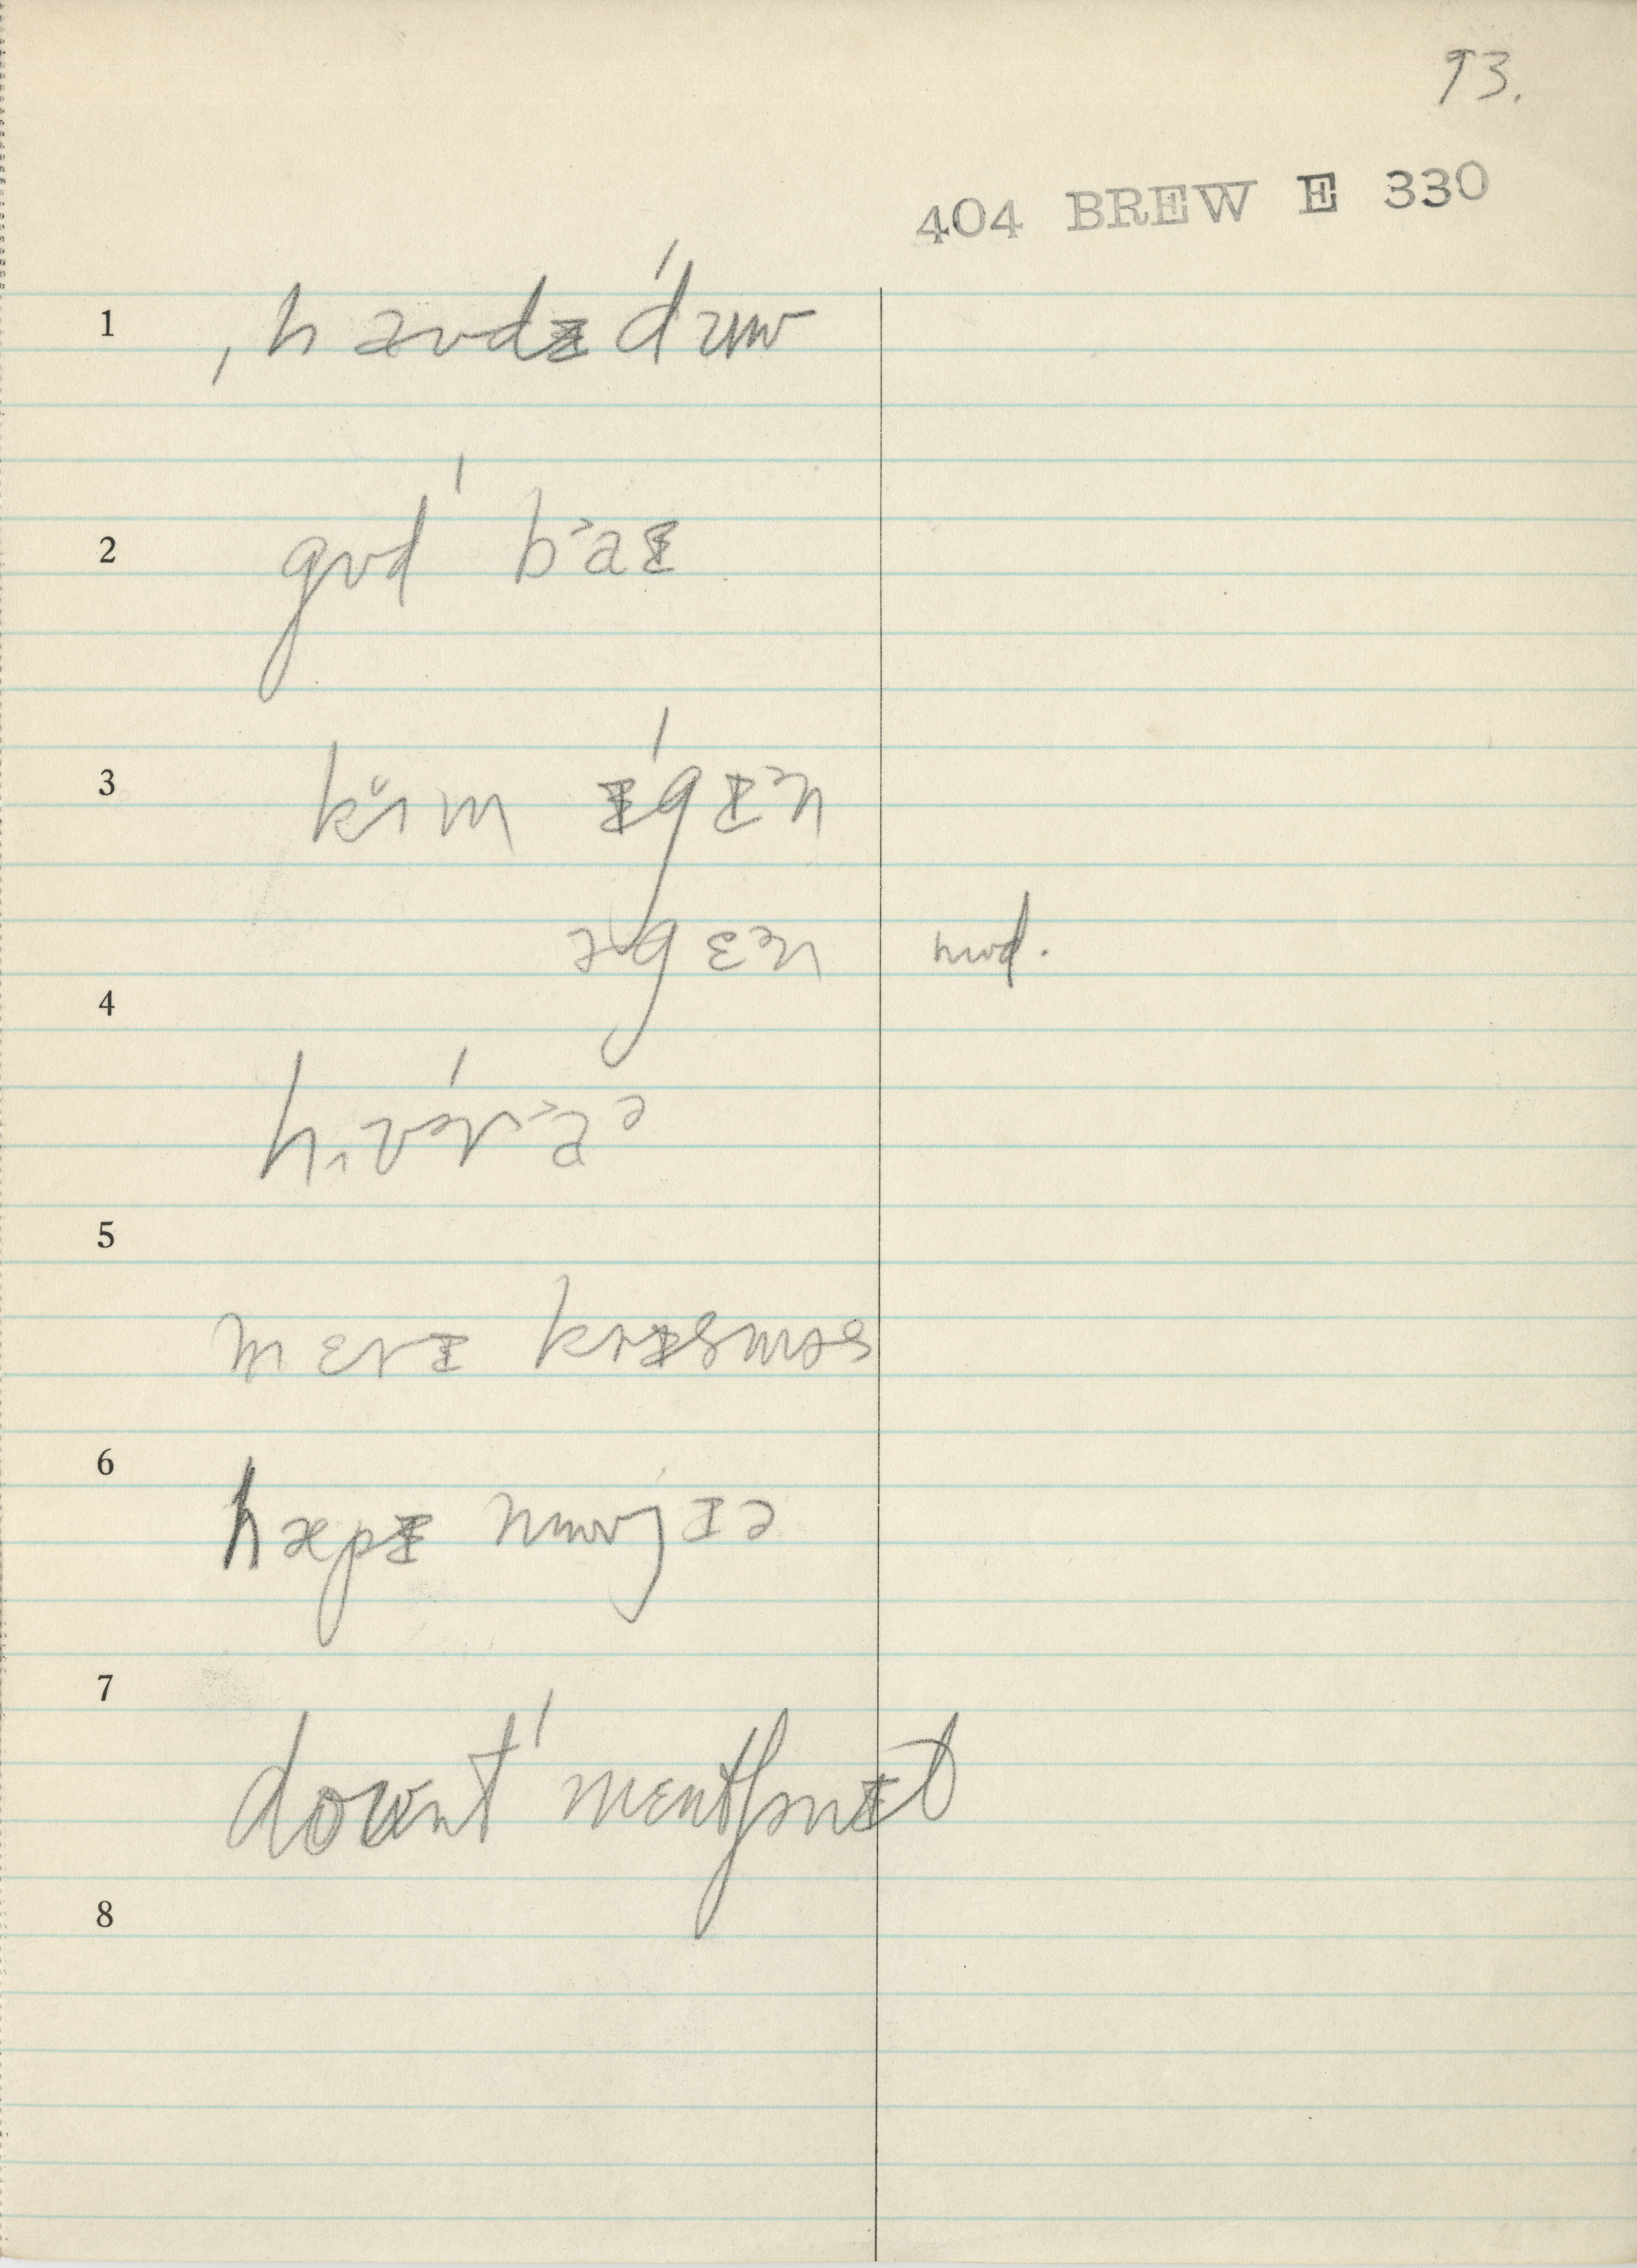 93.
404 BREW E 330
1 ˌhaʊdᵻˈdᵻuʊ
2 gʊdˈ b˃aᵻ
3 kɪm ᵻˈgᵻɛn
əgɛɛn mod.
4
hɪvərˈ˃aə
5
mɛrᵻ krᵻsməs
6 hæpᵻ nuʊjɪə
7
doʊntˈ mɛntʃənᵻt
8